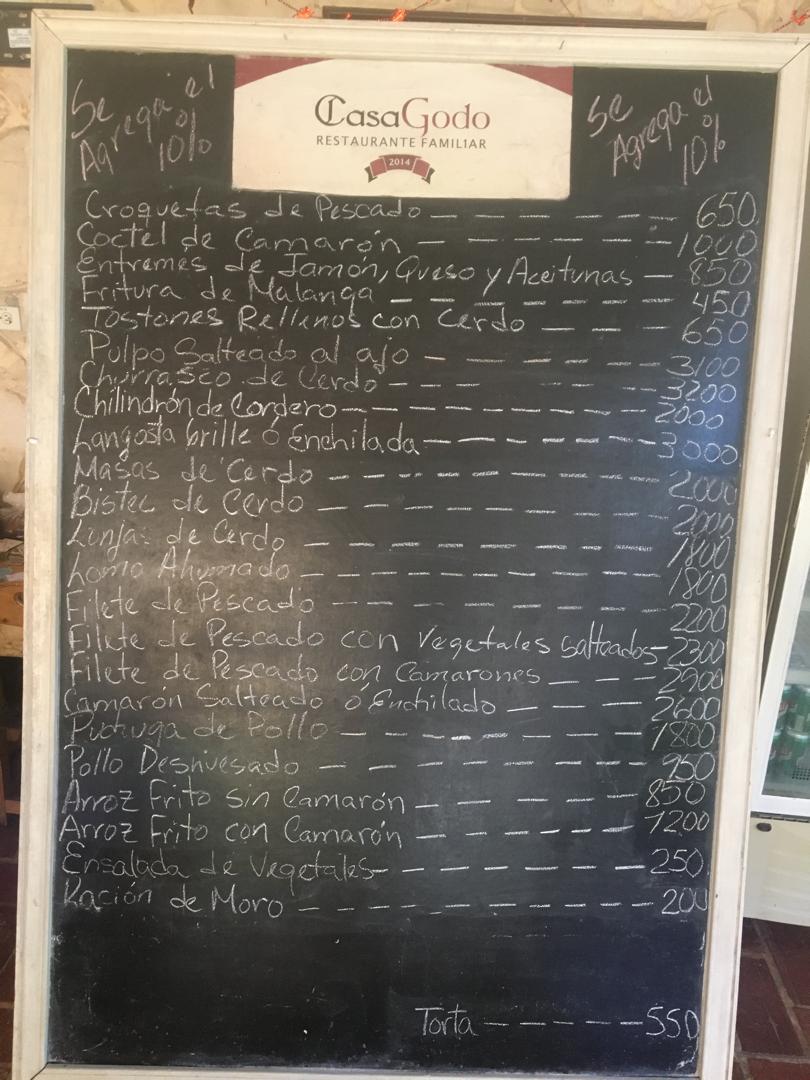 Se
Agrega el
10%
CasaGodo
RESTAURANTE FAMILIAR
2014
Se
Agrega el
10%
Croquetas de Pescado — — — — — 650
Coctel de Camarón — — — — — 1000
Entremes de Jamón, Queso y Aceitunas — 850
Fritura de Malanga — — — — — — 450
Tostones Rellenos con Cerdo — — — 650
Pulpo Salteado al ajo — — — — — — 3100
Churrasco de Cerdo — — — — — 3200
Chilindrón de Cordero — — — — — — — 2000
Langosta Grille ó Enchilada — — — — — — 3000
Masas de Cerdo — — — — — — — — 2000
Bistec de Cerdo — — — — — — — — 2000
Lonjas de Cerdo — — — — — — — 1800
Lomo Ahumado — — — — — — — — 1800
Filete de Pescado — — — — — — — 2200
Filete de Pescado con Vegetales Salteados — 2300
Filete de Pescado con Camarones — — — 2900
Camarón Salteado ó Enchilado — — — 2600
Pechuga de Pollo — — — — — — — 1800
Pollo Deshuesado — — — — — — — 950
Arroz Frito sin Camarón — — — — — 850
Arroz Frito con Camarón — — — — — 1200
Ensalada de Vegetales — — — — — — 250
Ración de Moro — — — — — — — — 200
Torta — — — — — 550